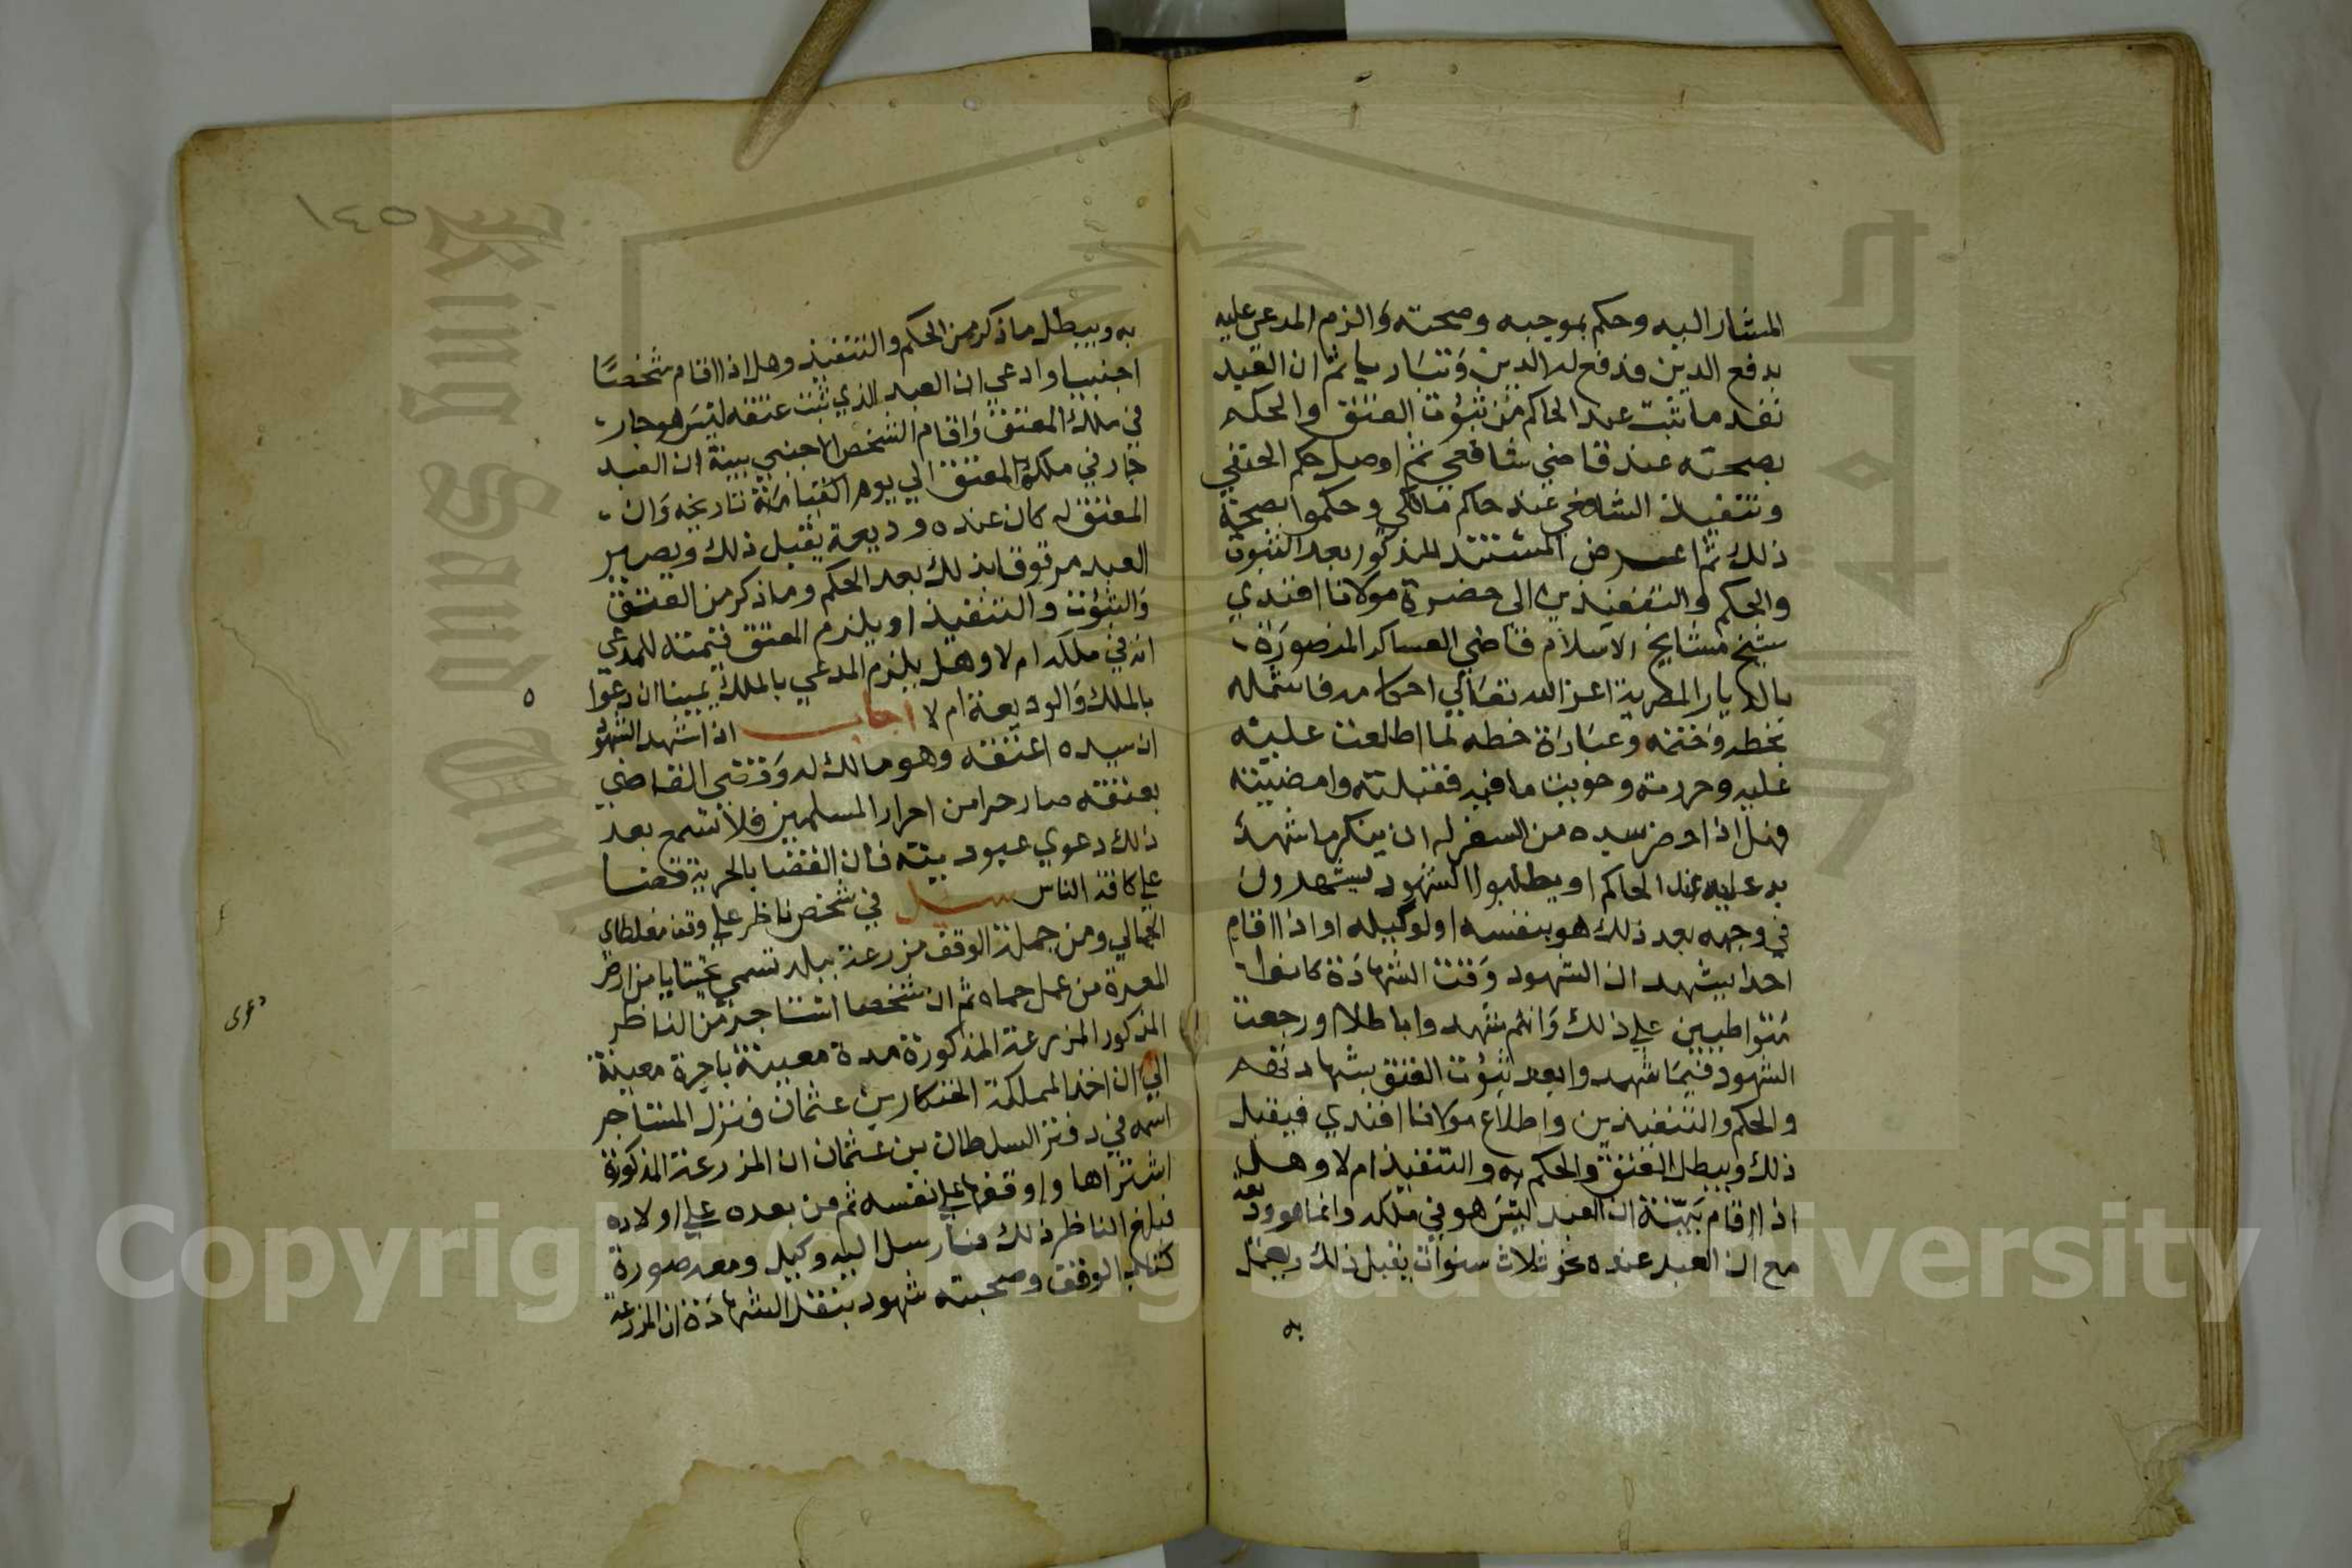 المشار اليه وحكم بموجبه وصحته والزم المدعي عليه
بدفع الدين فدفع له الدين وتباريا ثم ان العبد
نفد ما ثبت عند الحاكم من ثبوت العتق والحكم
بصحته عند قاضي شافعي ثم اوصل حكم الحنفي
وتنفيذ الشافعي عند حاكم مالكي وحكموا بصحة
ذلك ثم اعرض المستند المذكور بعد الثبوت
والحكم والتنفيذين الى حضرة مولانا افندي
شيخ مشايخ الاسلام قاضي العساكر المنصورة
بالديار المصرية اعز الله تعالي احكامه فاشمله
بخطه وختمه وعبارة خطه لما اطلعت عليه
عليه وحررته وحويت ما فيه فقبلته وامضيته
فهل اذا حضر سيده من السفر له ان ينكر ما شهد
به عليه عند الحاكم او يطلبوا الشهود ليشهدون
في وجهه بعد ذلك هو بنفسه او لوكيله او اذا اقام
احدا يشهد ان الشهود وقت الشهادة كانوا
متواطيين علي ذلك وانهم شهدوا باطلا او رجعت
الشهود فيما شهدوا بعد ثبوت العتق بشهادتهم
والحكم والتنفيذين واطلاع مولانا افندي فيقبل
ذلك ويبطل العتق والحكم به والتنفيذ ام لا وهل
اذا اقام بينة ان العبد ليس هو في ملكه وانما هو وديعة
مع ان العبد عنده نحو ثلاث سنوات يقبل ذلك ويعمل
به
١٤٥
به ويبطل ما ذكر من الحكم والتنفيذ وهل اذا اقام شخصا
اجنبيا وادعي ان العبد الذي ثبت عتقه ليس هو جار
في ملك المعتق واقام الشخص الاجنبي بينة ان العبد
جار في ملكه المعتق الي يوم القيامة تاريخه وان
المعتق له كان عنده وديعة يقبل ذلك ويصير
العبد مرقوقا بذلك بعد الحكم وما ذكر من العتق
والثبوت والتنفيذ او يلزم المعتق قيمته للمدعي
انه في ملكه ام لا وهل يلزم المدعي بالملك يمينا ان دعوا
بالملك والوديعة ام لا اجاب اذا شهد الشهود
ان سيده اعتقه وهو مالك له وقضي القاضي
بعتقه صار حرا من احرار المسلمين فلا تسمع بعد
ذلك دعوي عبوديته فان القضا بالحرية قضا
علي كافة الناس سيل في شخص ناظر علي وقف مغلطاي
الجمالي ومن جملة الوقف مزرعة ببلد تسمي من ارض
المعرة من عمل حماه ثم ان شخصا استاجر من الناظر
المذكور المزرعة المذكورة مدة معينة باجرة معينة
الي ان اخذ المملكة الخنكار بن عثمان فنزل المستاجر
اسمه في دفتر السلطان بن عثمان ان المزرعة المذكورة
اشتراها واوقفها علي نفسه ثم من بعده علي اولاده
فبلغ الناظر ذلك فارسل اليه وكيل ومعه صورة
كتاب الوقف وصحبته شهود بنقل الشهادة ان المزرعة
دعوى
Copyright © King Saud University